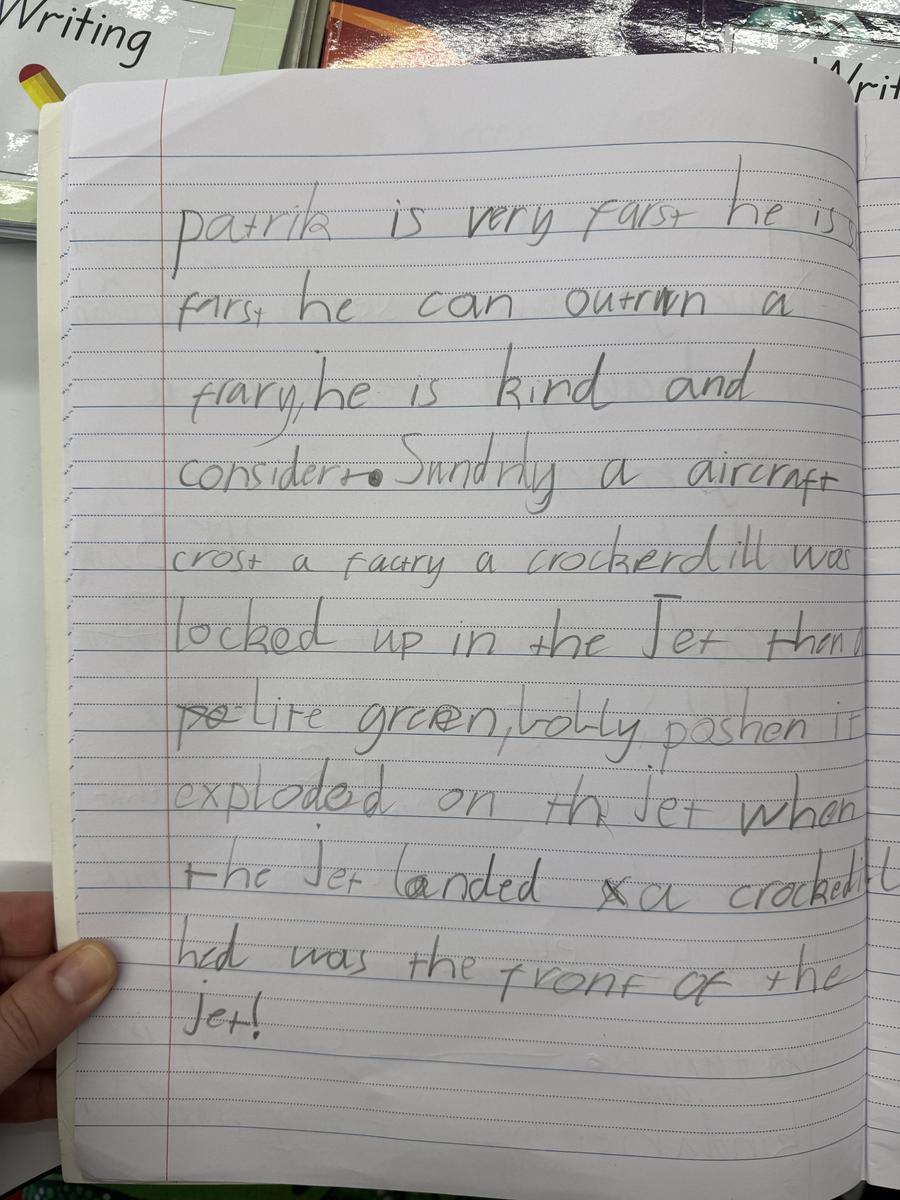 Writing
Writ
patrik is very farst he is
farst he can outrun a
frary, he is kind and
considert. Sundnly a aircraft
crost a factry a crockerdill was
locked up in the Jet then a
lite green, bolbly poshen it
exploded on the Jet when
the Jet landed a crockedill
hed was the front of the
jet!